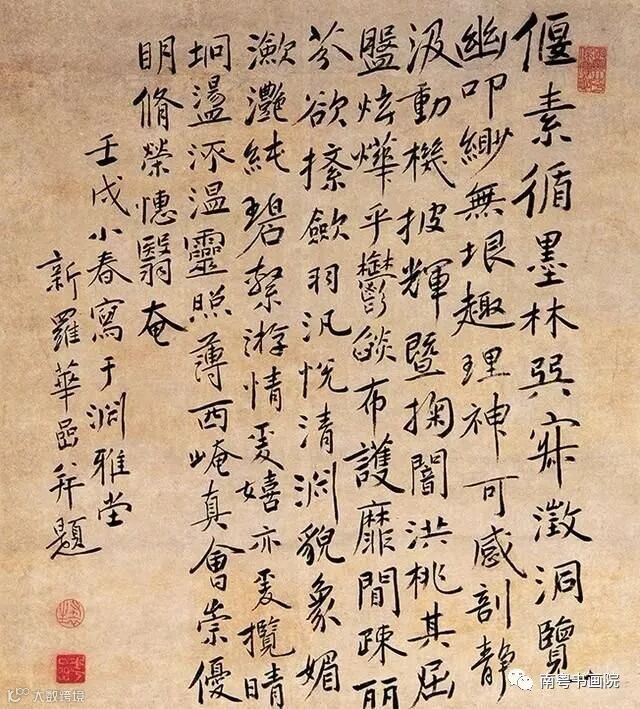 偃素循墨林巽寂澂洞覽
幽叩緲無垠趣理神可感剖靜
汲動機披輝暨掬闇洪桃其屈
盤炫燁乎鬱燄布護靡間疎丽
芬欲揉歛羽汎悅清渊貌象媚
瀲灩純碧繫游情爰嬉亦爰攬晴
坰盪溫靈照薄西崦真會崇優
明脩榮憓翳奄
壬戌小春寫于渊雅堂
新羅華喦并題
南粤书画院
大数跨境